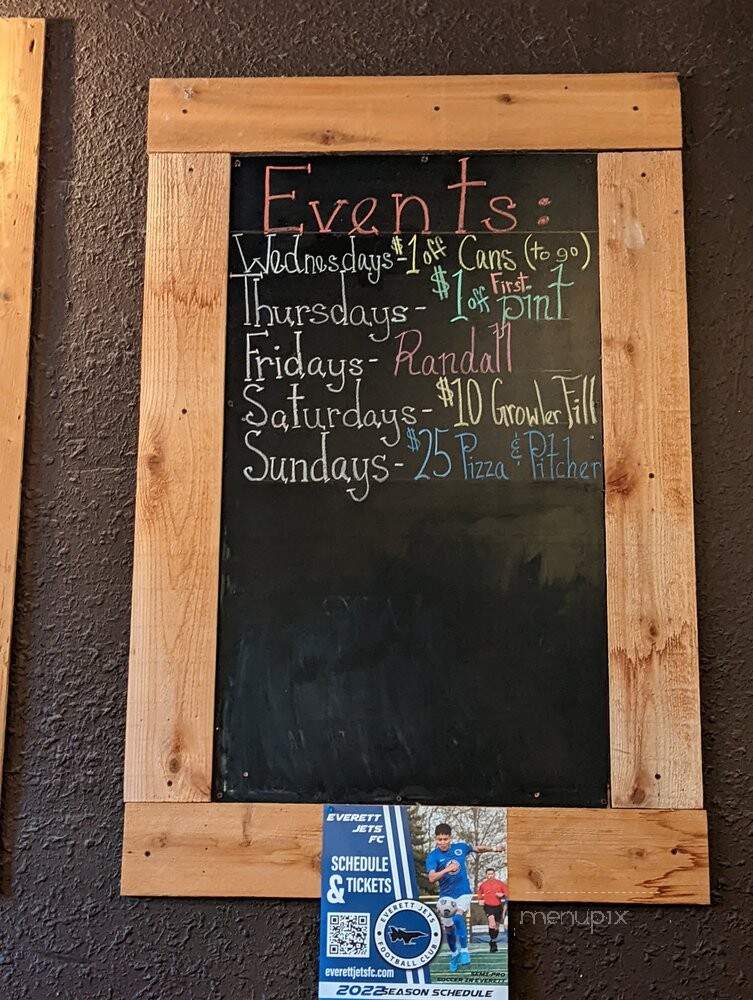 Events:
Wednesdays - $1 off Cans (to go)
Thursdays - $1 off First pint
Fridays - Randall
Saturdays - $10 Growler Fill
Sundays - $25 Pizza & Pitcher
EVERETT
JETS
FC
SCHEDULE
& TICKETS
EVERETT JETS
FOOTBALL CLUB
everettjetsfc.com
SEMI-PRO
SOCCER IN EVERETT
2022 SEASON SCHEDULE
menupix